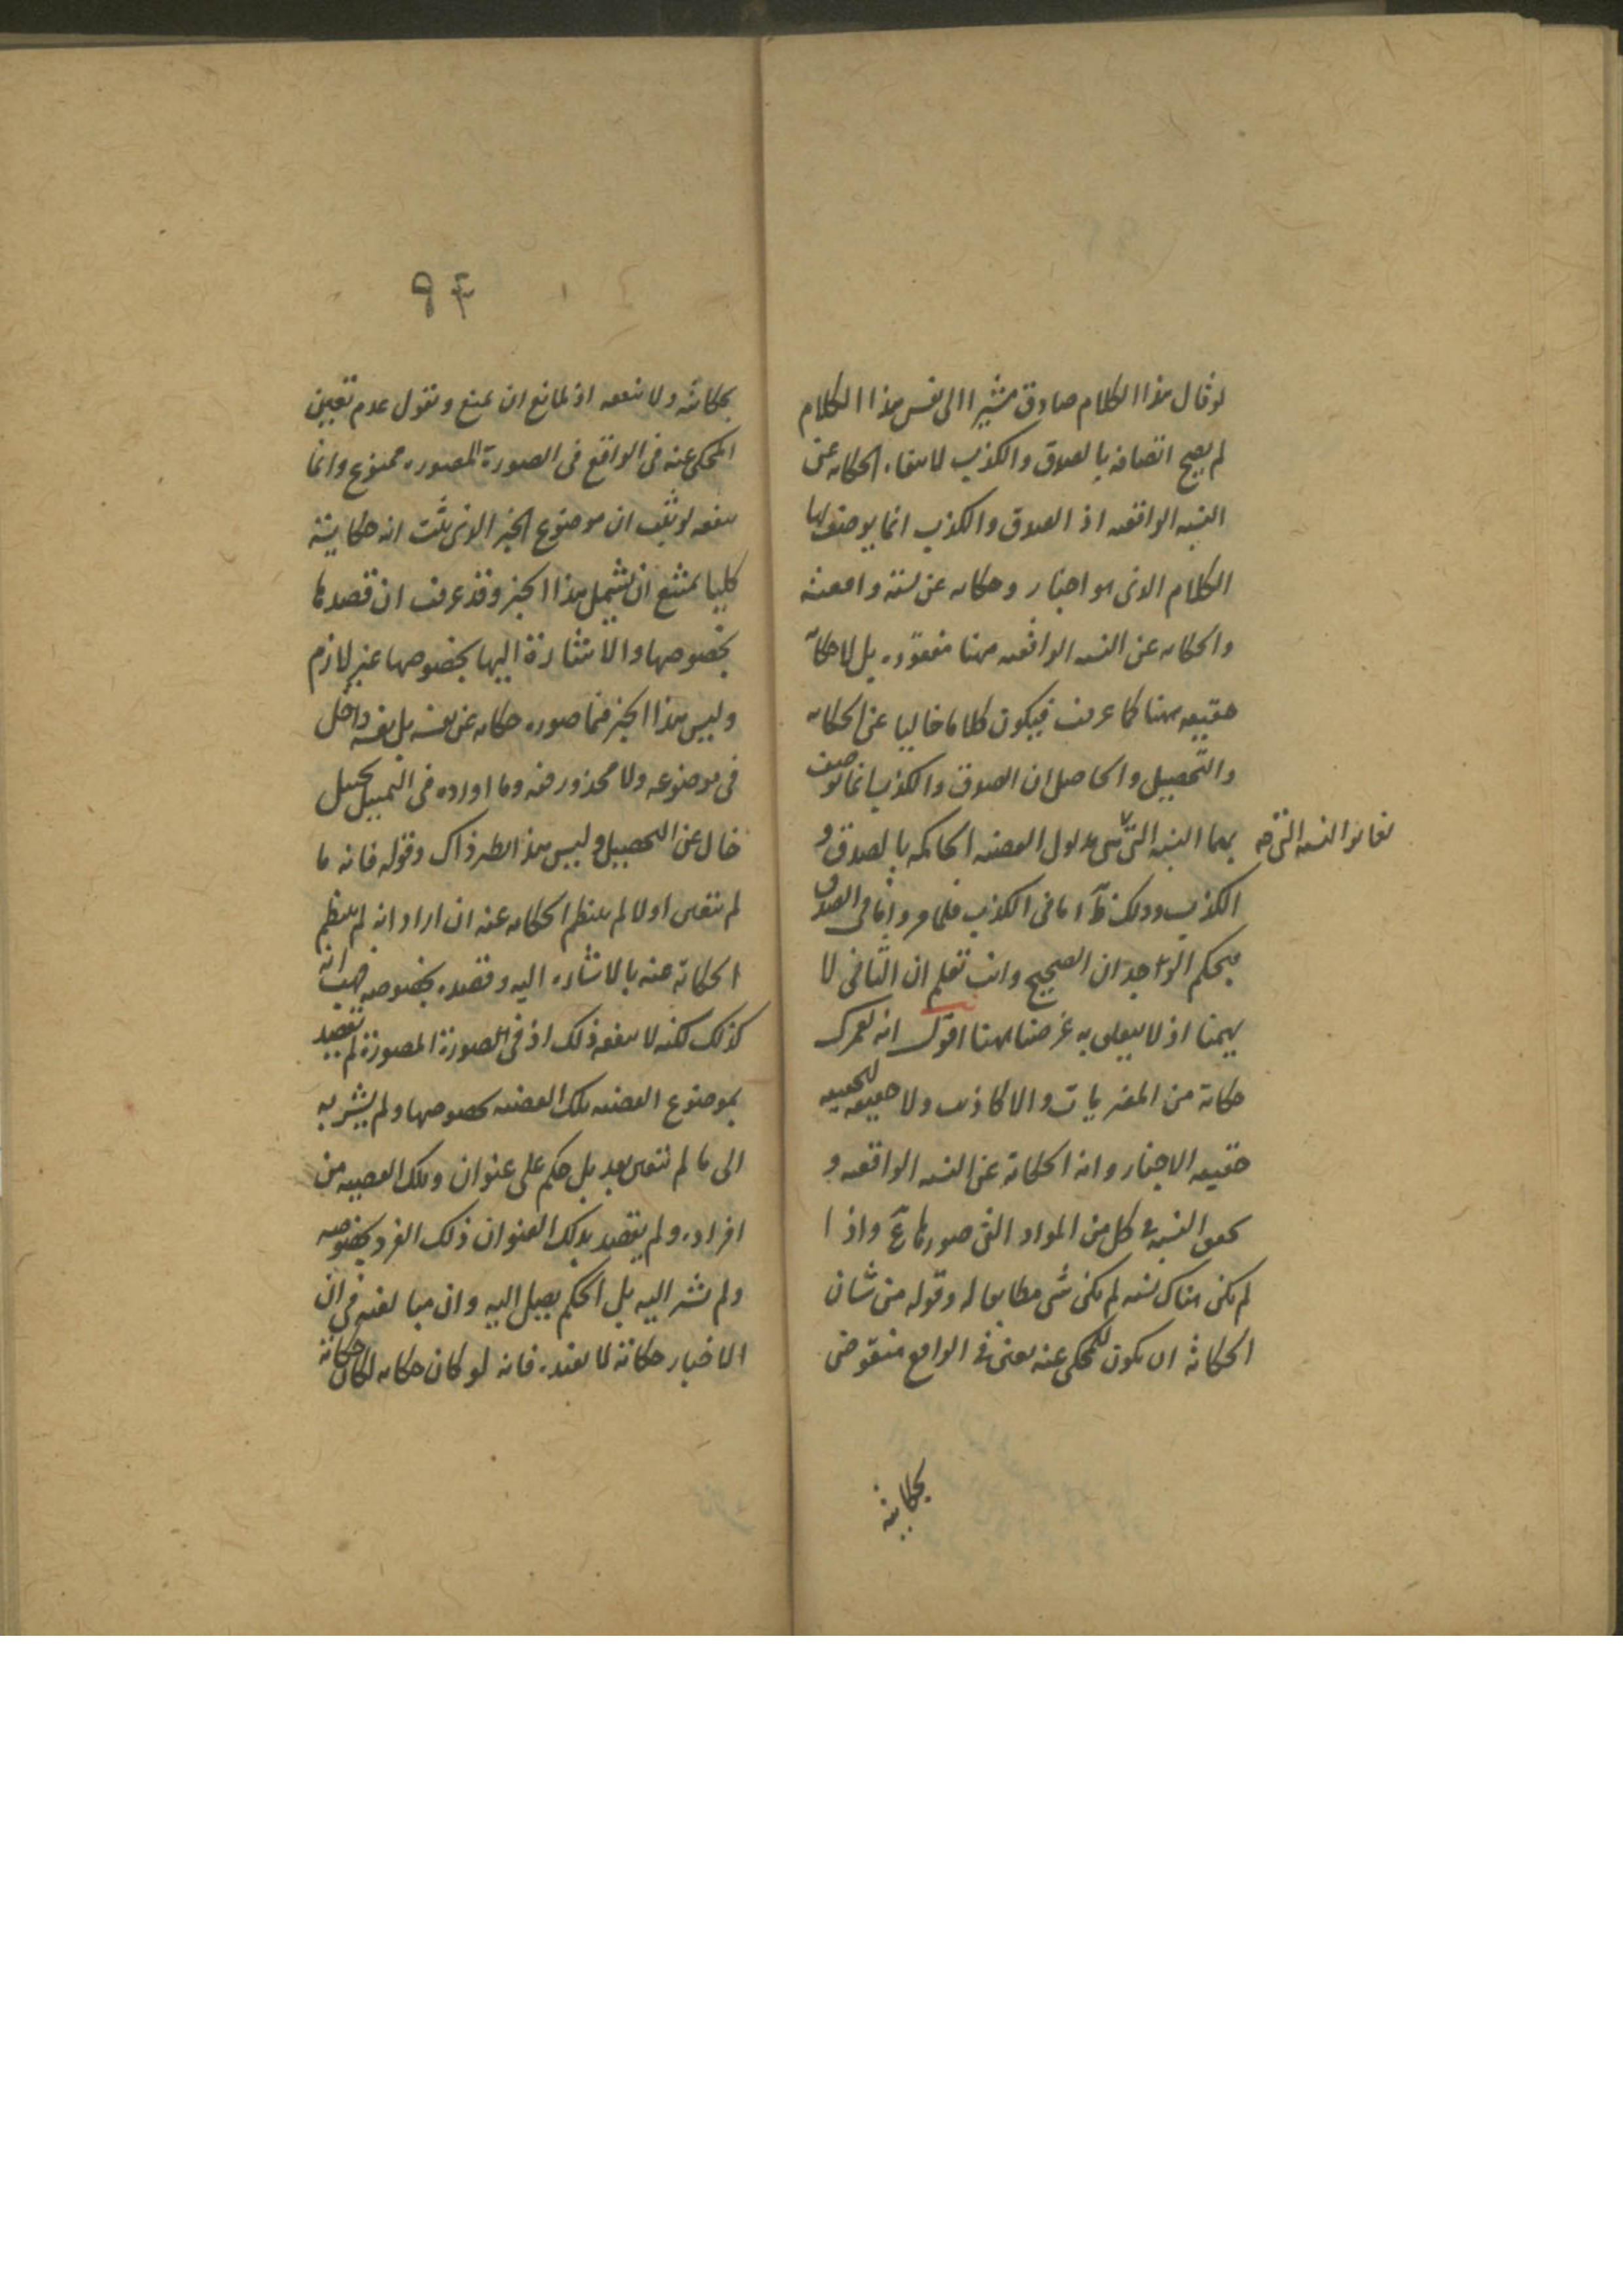 لو قال هذا الكلام صادق مشيرا الى نفس هذا الكلام
لم يصح اتصافه بالصدق والكذب لانتفاء الحكاية عن
النسبة الواقعة اذ الصدق والكذب انما يوصف بها
الكلام الذى هو اخبار وحكاية عن نسبة واقعة
والحكاية عن النسبة الواقعة ههنا مفقودة بل لا حكاية
حقيقة ههنا كما عرفت فيكون كلاما خاليا عن الحكاية
والتحصيل والحاصل ان الصدق والكذب انما يوصف
بهما النسبة التى هى مدلول القضية الحاكمة بالصدق و
الكذب وذلك ظ اما فى الكذب فلما مر واما فى الصدق
فبحكم الوجدان الصحيح وانت تعلم ان الثانى لا
يهمنا اذ لا يتعلق به غرضنا ههنا اقول انه لعمرك
حكاية من المفتريات والاكاذيب ولا حقيقة لحقيقة
حقيقة الاخبار وانه الحكاية عن النسبة الواقعة و
تحقق النسبة فى كل من المواد التى صورها ع واذا
لم يكن هناك نسبة لم يكن شى مطابقا له وقوله من شان
الحكاية ان يكون للمحكى عنه تعين فى الواقع منقوض
بحكايته
بحكايته ولا ينفعه اذ للمانع ان يمنع ونقول عدم تعين
المحكى عنه فى الواقع فى الصورة المصورة ممنوع وانما
ينفعه لو ثبت ان موضوع الخبر الذى يثبت انه حكايته
كليا يمتنع ان يشمل هذا الخبر وقد عرفت ان قصدها
بخصوصها والاشارة اليها بخصوصها غير لازم
وليس هذا الخبر فيما صوره حكاية عن نفسه بل نفسه داخل
فى موضوعه ولا محذور فيه وما اورده فى التمثيل تخييل
خال عن التحصيل وليس هذا نظير ذاك وقوله فانه ما
لم يتعين اولا لم ينتظم الحكاية عنه ان اراد انه لم ينتظم
الحكاية عنه بالاشارة اليه وقصده بخصوصه فهب انه
كذلك لكنه لا ينفعه ذلك اذ فى الصورة المصورة لم يقصد
بموضوع القضية تلك القضية بخصوصها ولم يشر به
الى ما لم يتعين بعد بل حكم على عنوان وتلك القضية من
افراده ولم يقصد بذلك العنوان ذلك الفرد بخصوصه
ولم يشر اليه بل الحكم يصل اليه وان مبالغته فى ان
الاخبار حكاية لا يفيده فانه لو كان حكاية لكان حكاية